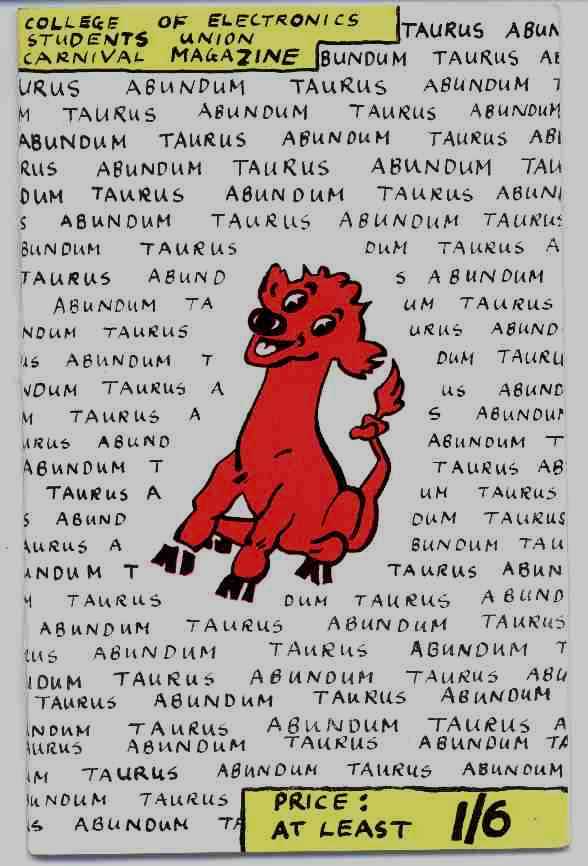 COLLEGE OF ELECTRONICS
STUDENTS UNION
CARNIVAL MAGAZINE
TAURUS ABUN
BUNDUM TAURUS AB
URUS ABUNDUM TAURUS ABUNDUM T
M TAURUS ABUNDUM TAURUS ABUNDUM
ABUNDUM TAURUS ABUNDUM TAURUS ABU
RUS ABUNDUM TAURUS ABUNDUM TAU
DUM TAURUS ABUNDUM TAURUS ABUN
S ABUNDUM TAURUS ABUNDUM TAURUS
BUNDUM TAURUS DUM TAURUS A
TAURUS ABUND S ABUNDUM
ABUNDUM TA UM TAURUS
NDUM TAURUS URUS ABUND
US ABUNDUM T DUM TAURU
NDUM TAURUS A US ABUND
M TAURUS A S ABUNDUM
URUS ABUND ABUNDUM T
ABUNDUM T TAURUS AB
TAURUS A UM TAURUS
S ABUND DUM TAURUS
AURUS A BUNDUM TAU
UNDUM T TAURUS ABUN
M TAURUS DUM TAURUS ABUND
ABUNDUM TAURUS ABUNDUM TAURUS
RUS ABUNDUM TAURUS ABUNDUM T
NDUM TAURUS ABUNDUM TAURUS ABU
TAURUS ABUNDUM TAURUS ABUNDUM
NDUM TAURUS ABUNDUM TAURUS A
AURUS ABUNDUM TAURUS ABUNDUM TA
UM TAURUS ABUNDUM TAURUS ABUNDUM
UNDUM TAURUS
S ABUNDUM TA
PRICE:
AT LEAST 1/6